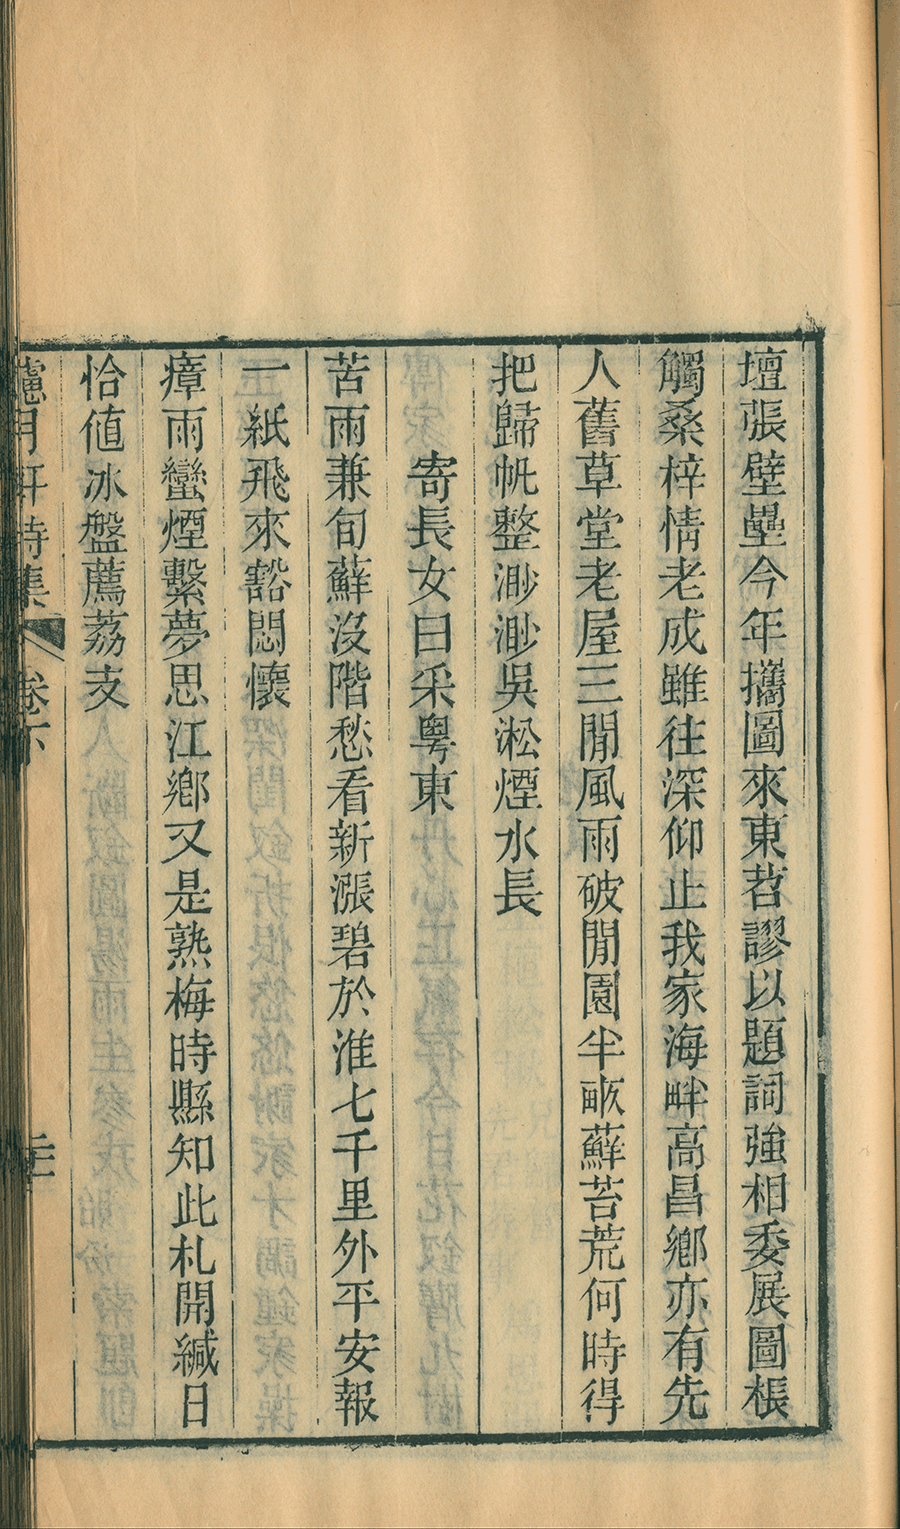 壇張壁壘今年攜圖來東莒謬以題詞強相委展圖棖
觸桑梓情老成雖往深仰止我家海畔高昌鄉亦有先
人舊草堂老屋三閒風雨破閒園半畝蘚苔荒何時得
把歸帆整渺渺吳淞煙水長
寄長女曰采粵東
苦雨兼旬蘚沒階愁看新漲碧於淮七千里外平安報
一紙飛來豁悶懷
瘴雨蠻煙繫夢思江鄉又是熟梅時縣知此札開緘日
恰値冰盤薦荔支
月軒詩集 卷下